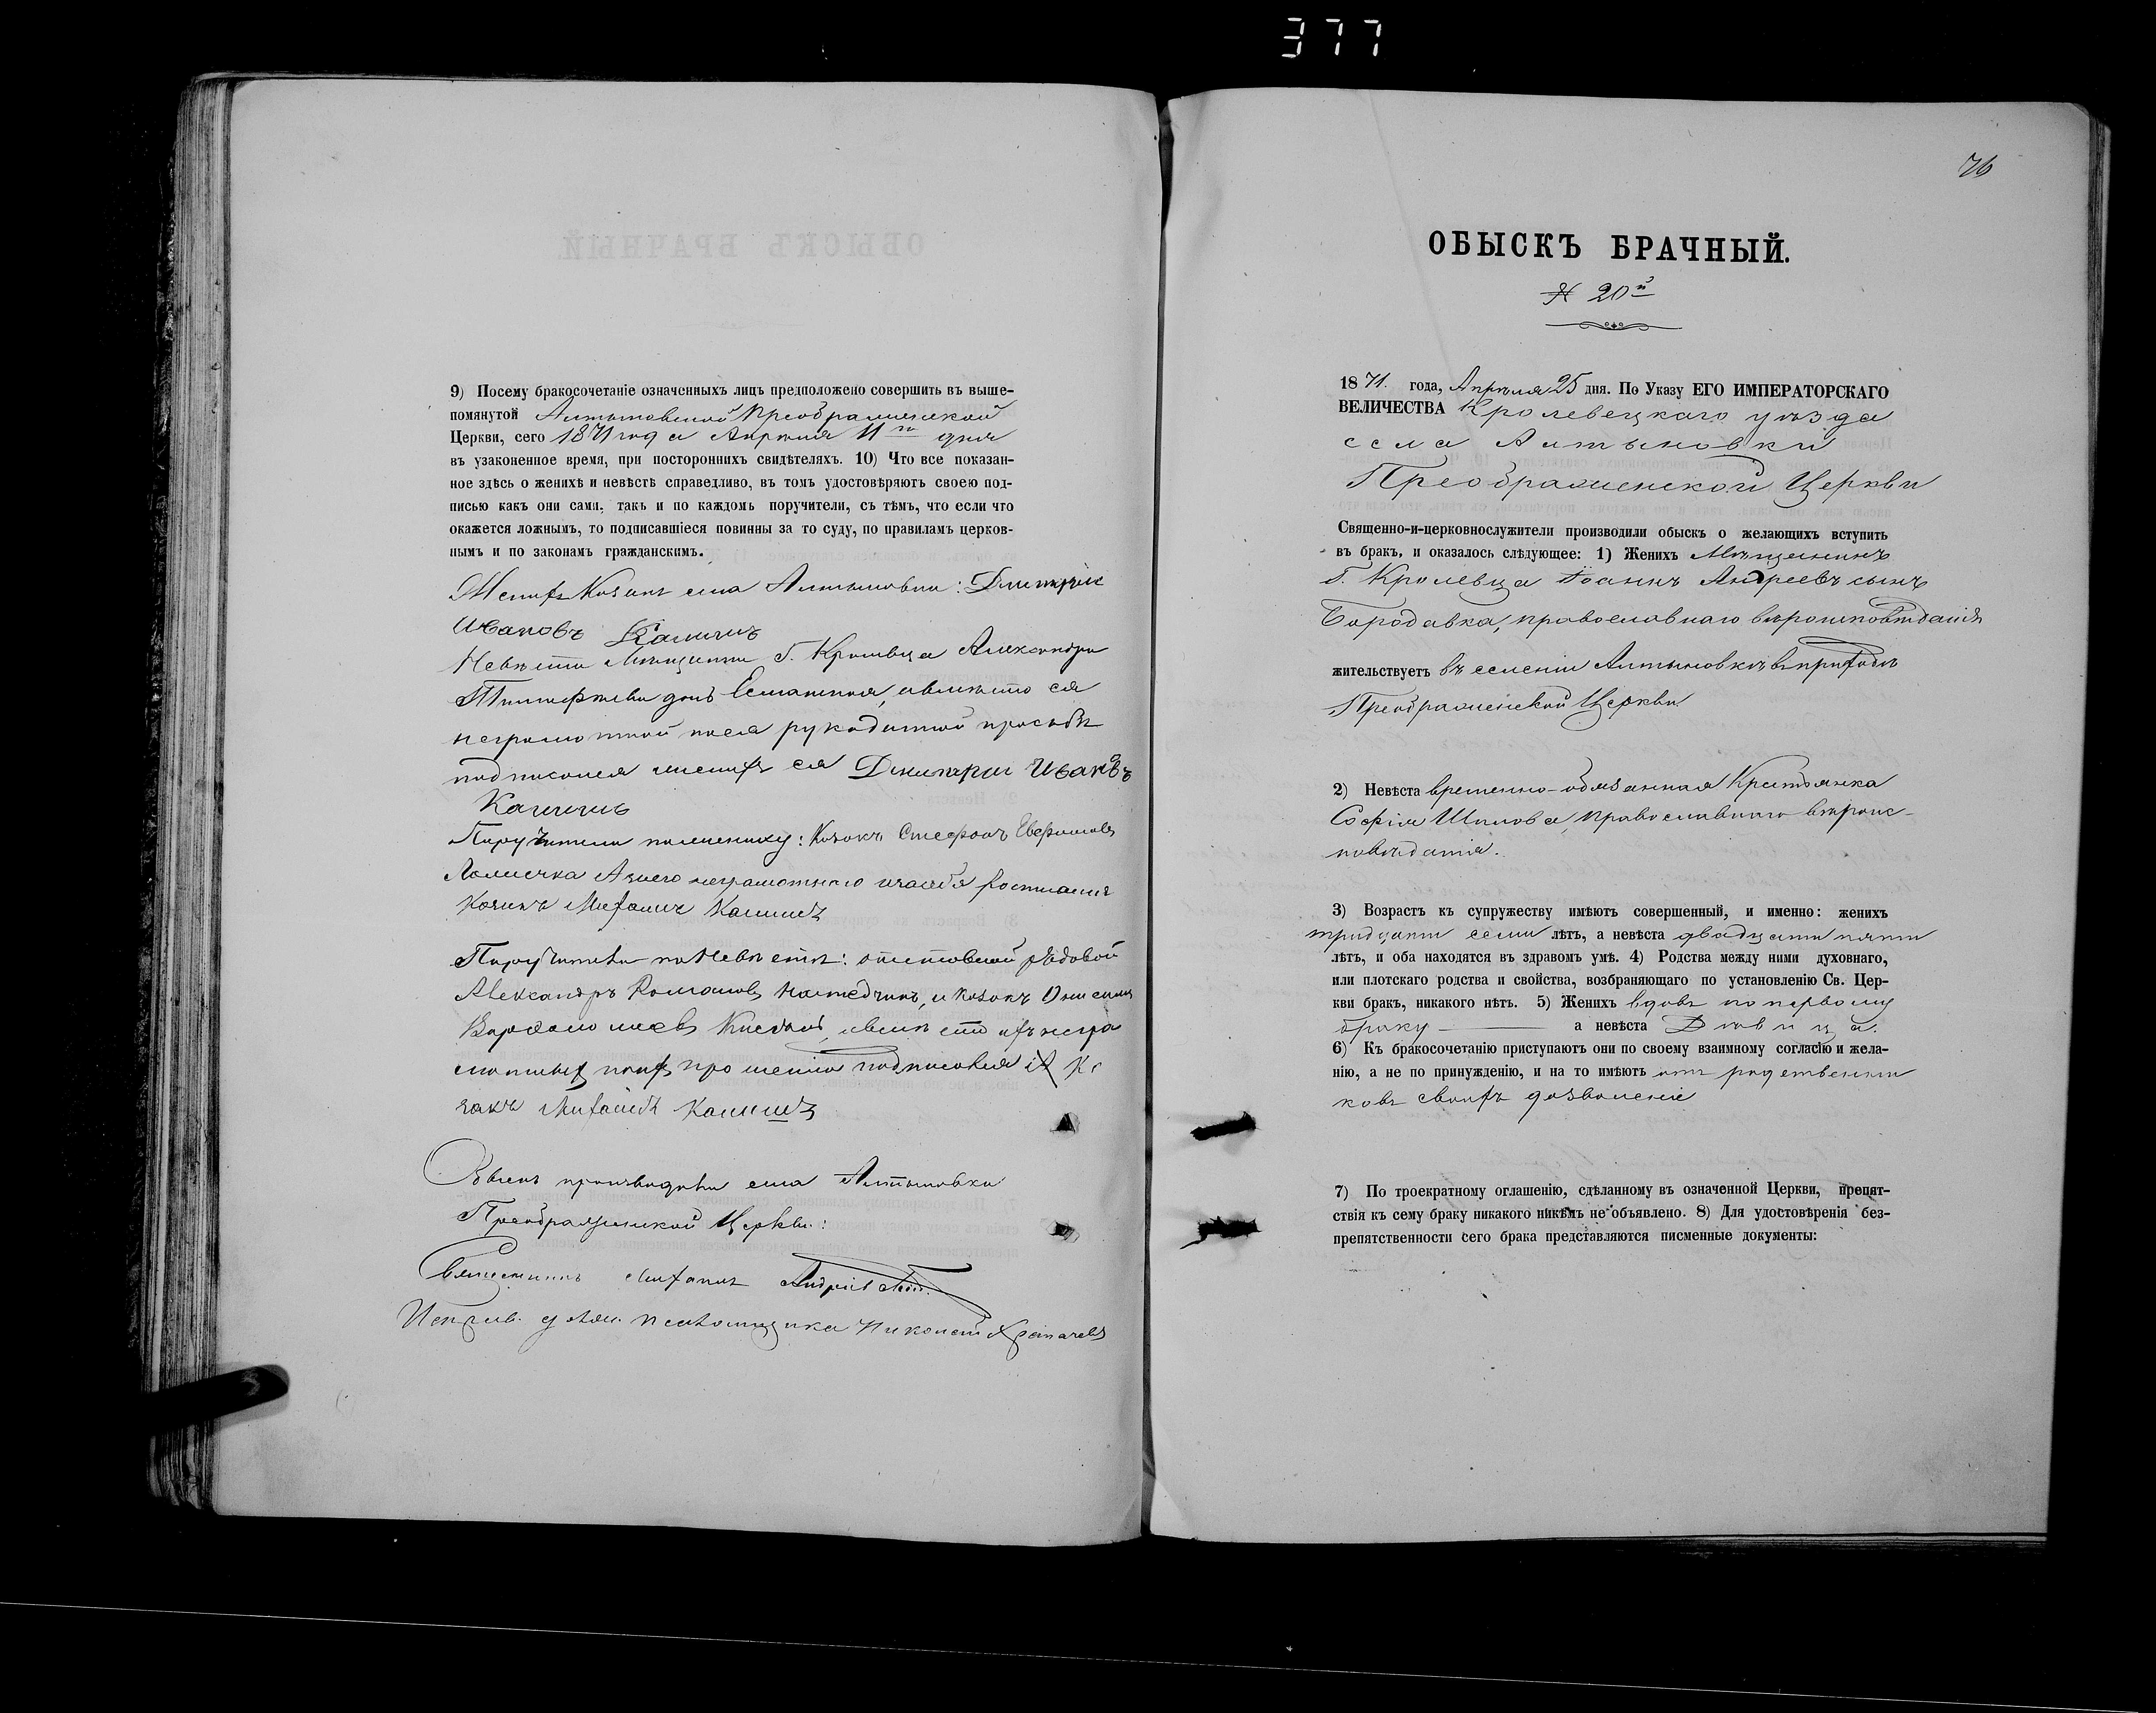 377
9) Посему бракосочетаніе означенныхъ лицъ предположено совершить въ выше-
помянутой Алтыновской Преображенской
Церкви, сего 1871 года Апрѣля 11го дня
въ узаконенное время, при постороннихъ свидѣтеляхъ. 10) Что все показан-
ное здѣсь о женихѣ и невѣстѣ справедливо, въ томъ удостовѣряютъ своею под-
писью какъ они сами, такъ и по каждомъ поручители, съ тѣмъ, что если что
окажется ложнымъ, то подписавшіеся повинны за то суду, по правиламъ церков-
нымъ и по законамъ гражданскимъ.
Женихъ Козакъ села Алтыновки: Дмитрій
Ивановъ
Невѣста Мѣщанка Г. Кролевца Александра
дочь вмѣсто ея
неграмотной по ея рукодатной просьбѣ
подписался женихъ ея Дмитрій Ивановъ
Поручители по жениху: Козакъ Стефанъ Евфимовъ
неграмотнаго
Козакъ Михаилъ
Поручители по Невѣстѣ: отставной рядовой
Александръ Романовъ и козакъ
вмѣсто ихъ негра
мотныхъ по ихъ прошенію подписался Ко
закъ Михаилъ
Обыскъ производили села Алтыновки
Преображенской Церкви:
Священникъ
Исправ. долж. Псаломщика
76
ОБЫСКЪ БРАЧНЫЙ.
№ 20й
1871. года, Апрѣля 25 дня. По Указу ЕГО ИМПЕРАТОРСКАГО
ВЕЛИЧЕСТВА Кролевецкаго уѣзда
села Алтыновки
Преображенской Церкви
Священно-и-церковнослужители производили обыскъ о желающихъ вступить
въ бракъ, и оказалось слѣдующее: 1) Женихъ Мѣщанинъ
Г. Кролевца Іоаннъ Андреевъ сынъ
Бородавка, православнаго вѣроисповѣданія
жительствуетъ въ селеніи Алтыновкѣ въ приходѣ
Преображенской Церкви
2) Невѣста временно-обязанная Крестьянка
Софія Шилова, православнаго вѣроис-
повѣданія.
3) Возрастъ къ супружеству имѣютъ совершенный, и именно: женихъ
тридцати семи лѣтъ, а невѣста двадцати пяти
лѣтъ, и оба находятся въ здравомъ умѣ. 4) Родства между ними духовнаго,
или плотскаго родства и свойства, возбраняющаго по установленію Св. Цер-
кви бракъ, никакого нѣтъ. 5) Женихъ вдовъ по первому
браку а невѣста Дѣвица.
6) Къ бракосочетанію приступаютъ они по своему взаимному согласію и жела-
нію, а не по принужденію, и на то имѣютъ отъ родственни
ковъ своихъ дозволеніе
7) По троекратному оглашенію, сдѣланному въ означенной Церкви, препят-
ствія къ сему браку никакого никѣмъ не объявлено. 8) Для удостовѣренія без-
препятственности сего брака представляются писменные документы: